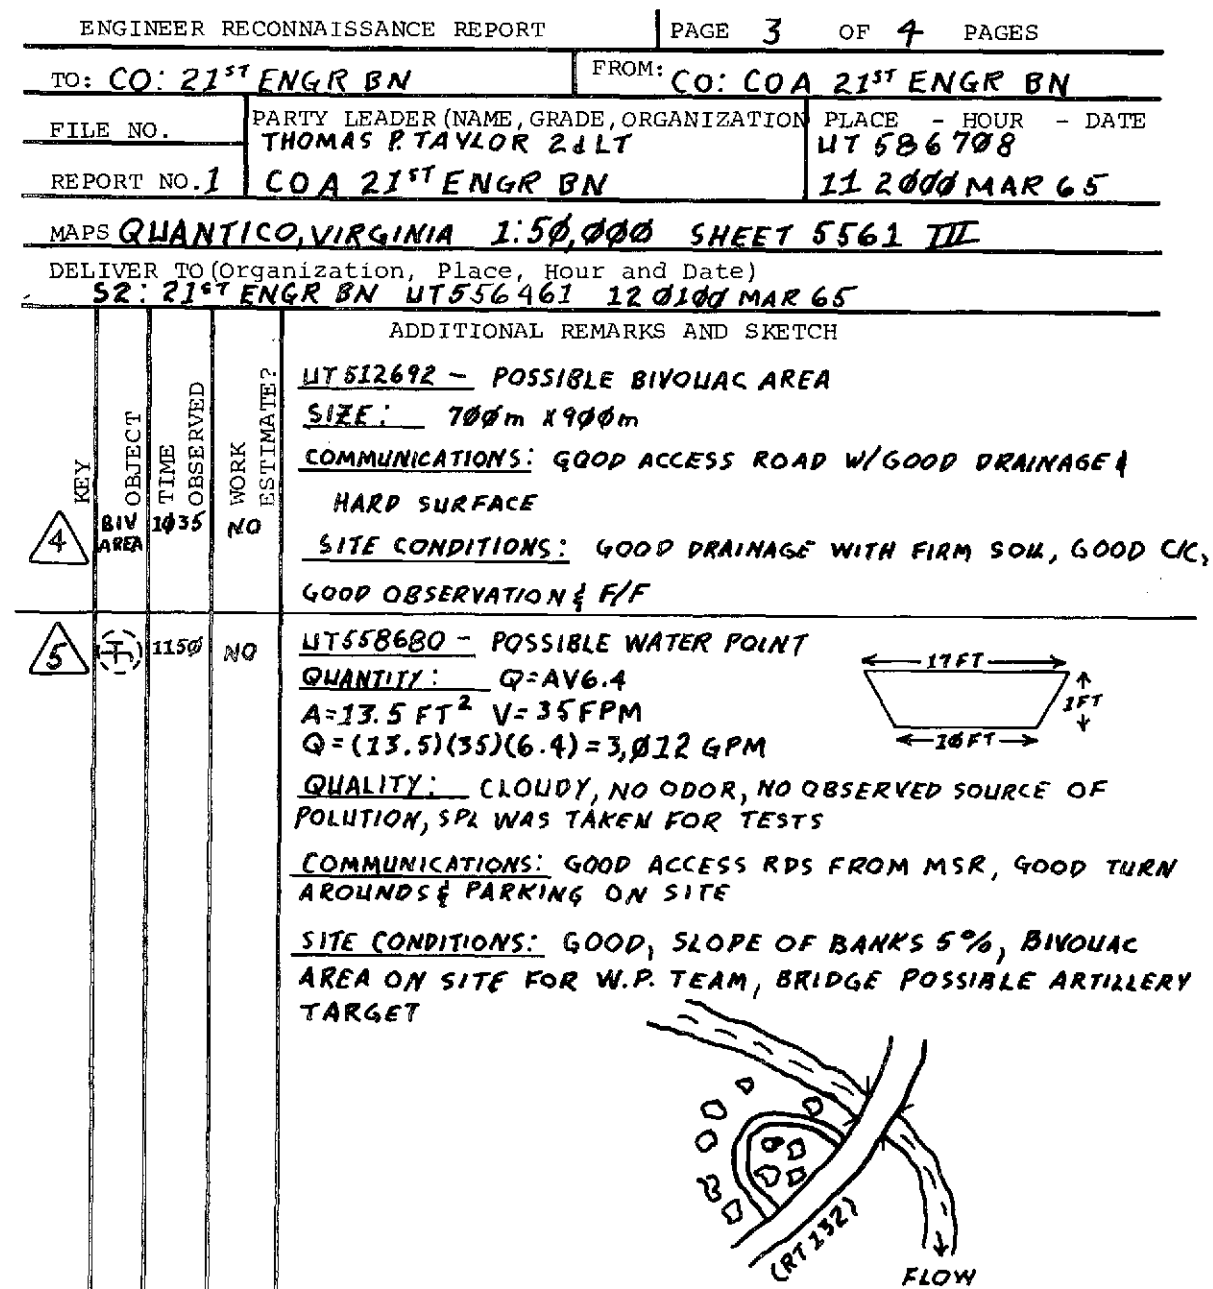 ENGINEER RECONNAISSANCE REPORT PAGE 3 OF 4 PAGES
TO: CO: 21ST ENGR BN FROM: CO: CO A 21ST ENGR BN
FILE NO. PARTY LEADER (NAME, GRADE, ORGANIZATION PLACE - HOUR - DATE
THOMAS P. TAYLOR 2d LT UT 586708
REPORT NO. 1 CO A 21ST ENGR BN 11 2000 MAR 65
MAPS QUANTICO, VIRGINIA 1:50,000 SHEET 5561 III
DELIVER TO (Organization, Place, Hour and Date)
S2: 21ST ENGR BN UT556461 12 0100 MAR 65
KEY
OBJECT
TIME OBSERVED
WORK ESTIMATE?
ADDITIONAL REMARKS AND SKETCH
4 BIV AREA 1035 NO
UT512692 - POSSIBLE BIVOUAC AREA
SIZE: 700m X 900m
COMMUNICATIONS: GOOD ACCESS ROAD W/GOOD DRAINAGE &
HARD SURFACE
SITE CONDITIONS: GOOD DRAINAGE WITH FIRM SOIL, GOOD C/C,
GOOD OBSERVATION & F/F
5 1150 NO
UT558680 - POSSIBLE WATER POINT
QUANTITY: Q=AV6.4
A=13.5 FT² V=35 FPM
Q=(13.5)(35)(6.4)=3,012 GPM
17 FT
1 FT
10 FT
QUALITY: CLOUDY, NO ODOR, NO OBSERVED SOURCE OF
POLUTION, SPL WAS TAKEN FOR TESTS
COMMUNICATIONS: GOOD ACCESS RDS FROM MSR, GOOD TURN
AROUNDS & PARKING ON SITE
SITE CONDITIONS: GOOD, SLOPE OF BANKS 5%, BIVOUAC
AREA ON SITE FOR W.P. TEAM, BRIDGE POSSIBLE ARTILLERY
TARGET
(RT 132)
FLOW